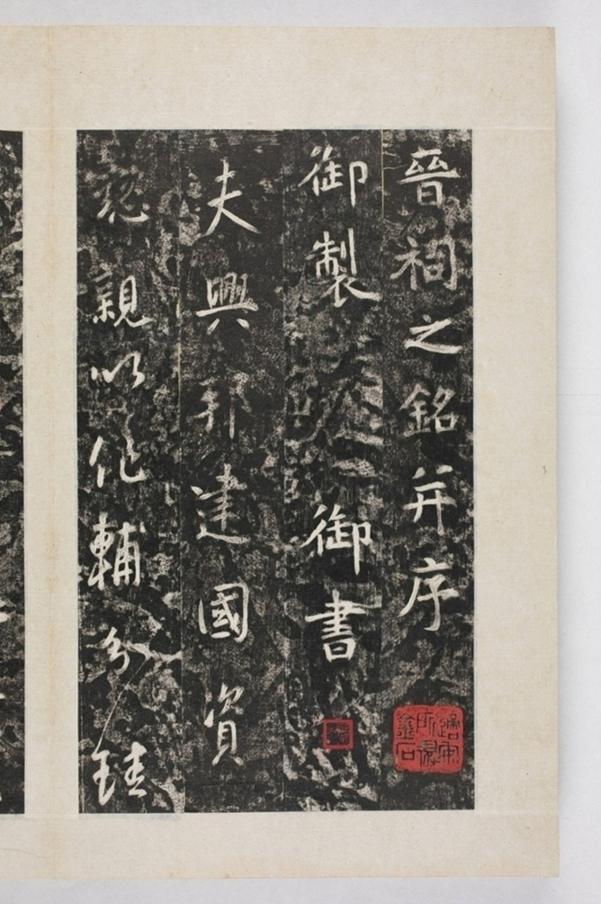 晉祠之銘并序
御製 御書
夫興邦建國資
懿親以作輔分珪